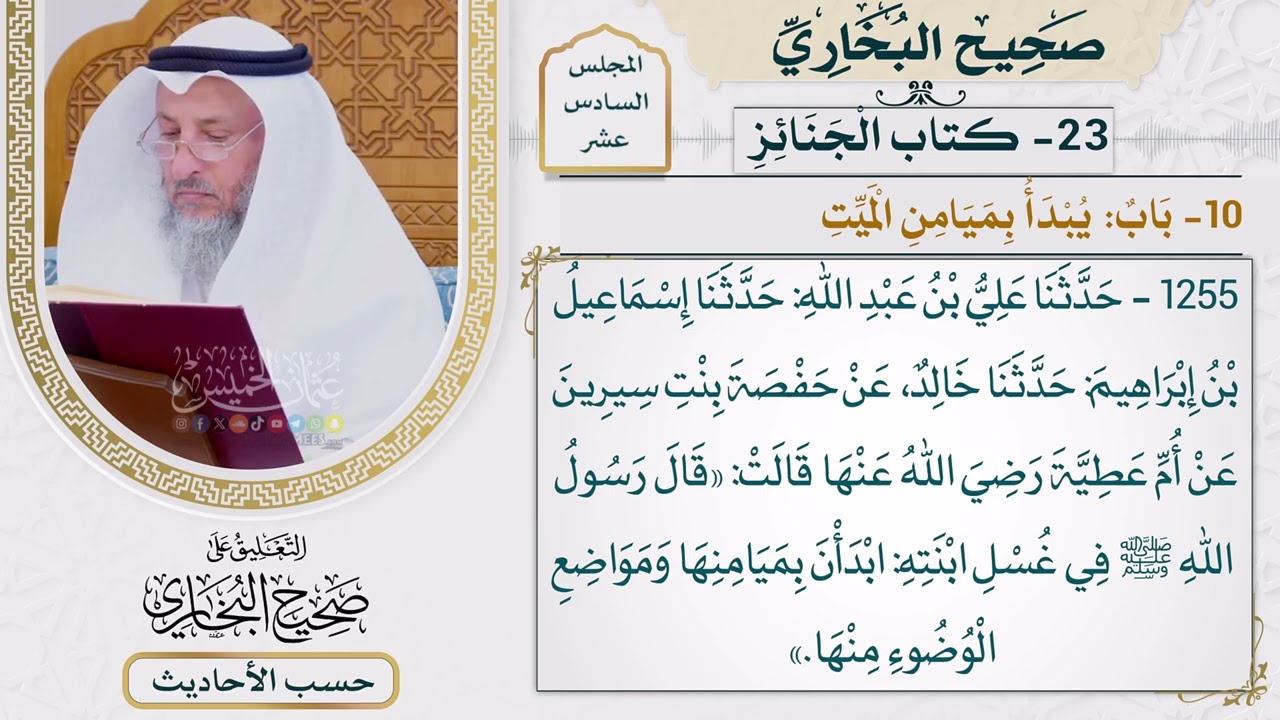 صَحِيح البُخَارِيِّ
المجلس
السادس
عشر
23- كتاب الْجَنَائِزِ
10- بَابٌ: يُبْدَأُ بِمَيَامِنِ الْمَيِّتِ
1255 - حَدَّثَنَا عَلِيُّ بْنُ عَبْدِ اللهِ: حَدَّثَنَا إِسْمَاعِيلُ
بْنُ إِبْرَاهِيمَ: حَدَّثَنَا خَالِدٌ، عَنْ حَفْصَةَ بِنْتِ سِيرِينَ
عَنْ أُمِّ عَطِيَّةَ رَضِيَ اللهُ عَنْهَا قَالَتْ: «قَالَ رَسُولُ
اللهِ ﷺ فِي غُسْلِ ابْنَتِهِ: ابْدَأْنَ بِمَيَامِنِهَا وَمَوَاضِعِ
الْوُضُوءِ مِنْهَا.»
عثمان الخميس
التَّعْلِيقُ عَلَى
صَحِيحُ البُخَارِي
حسب الأحاديث